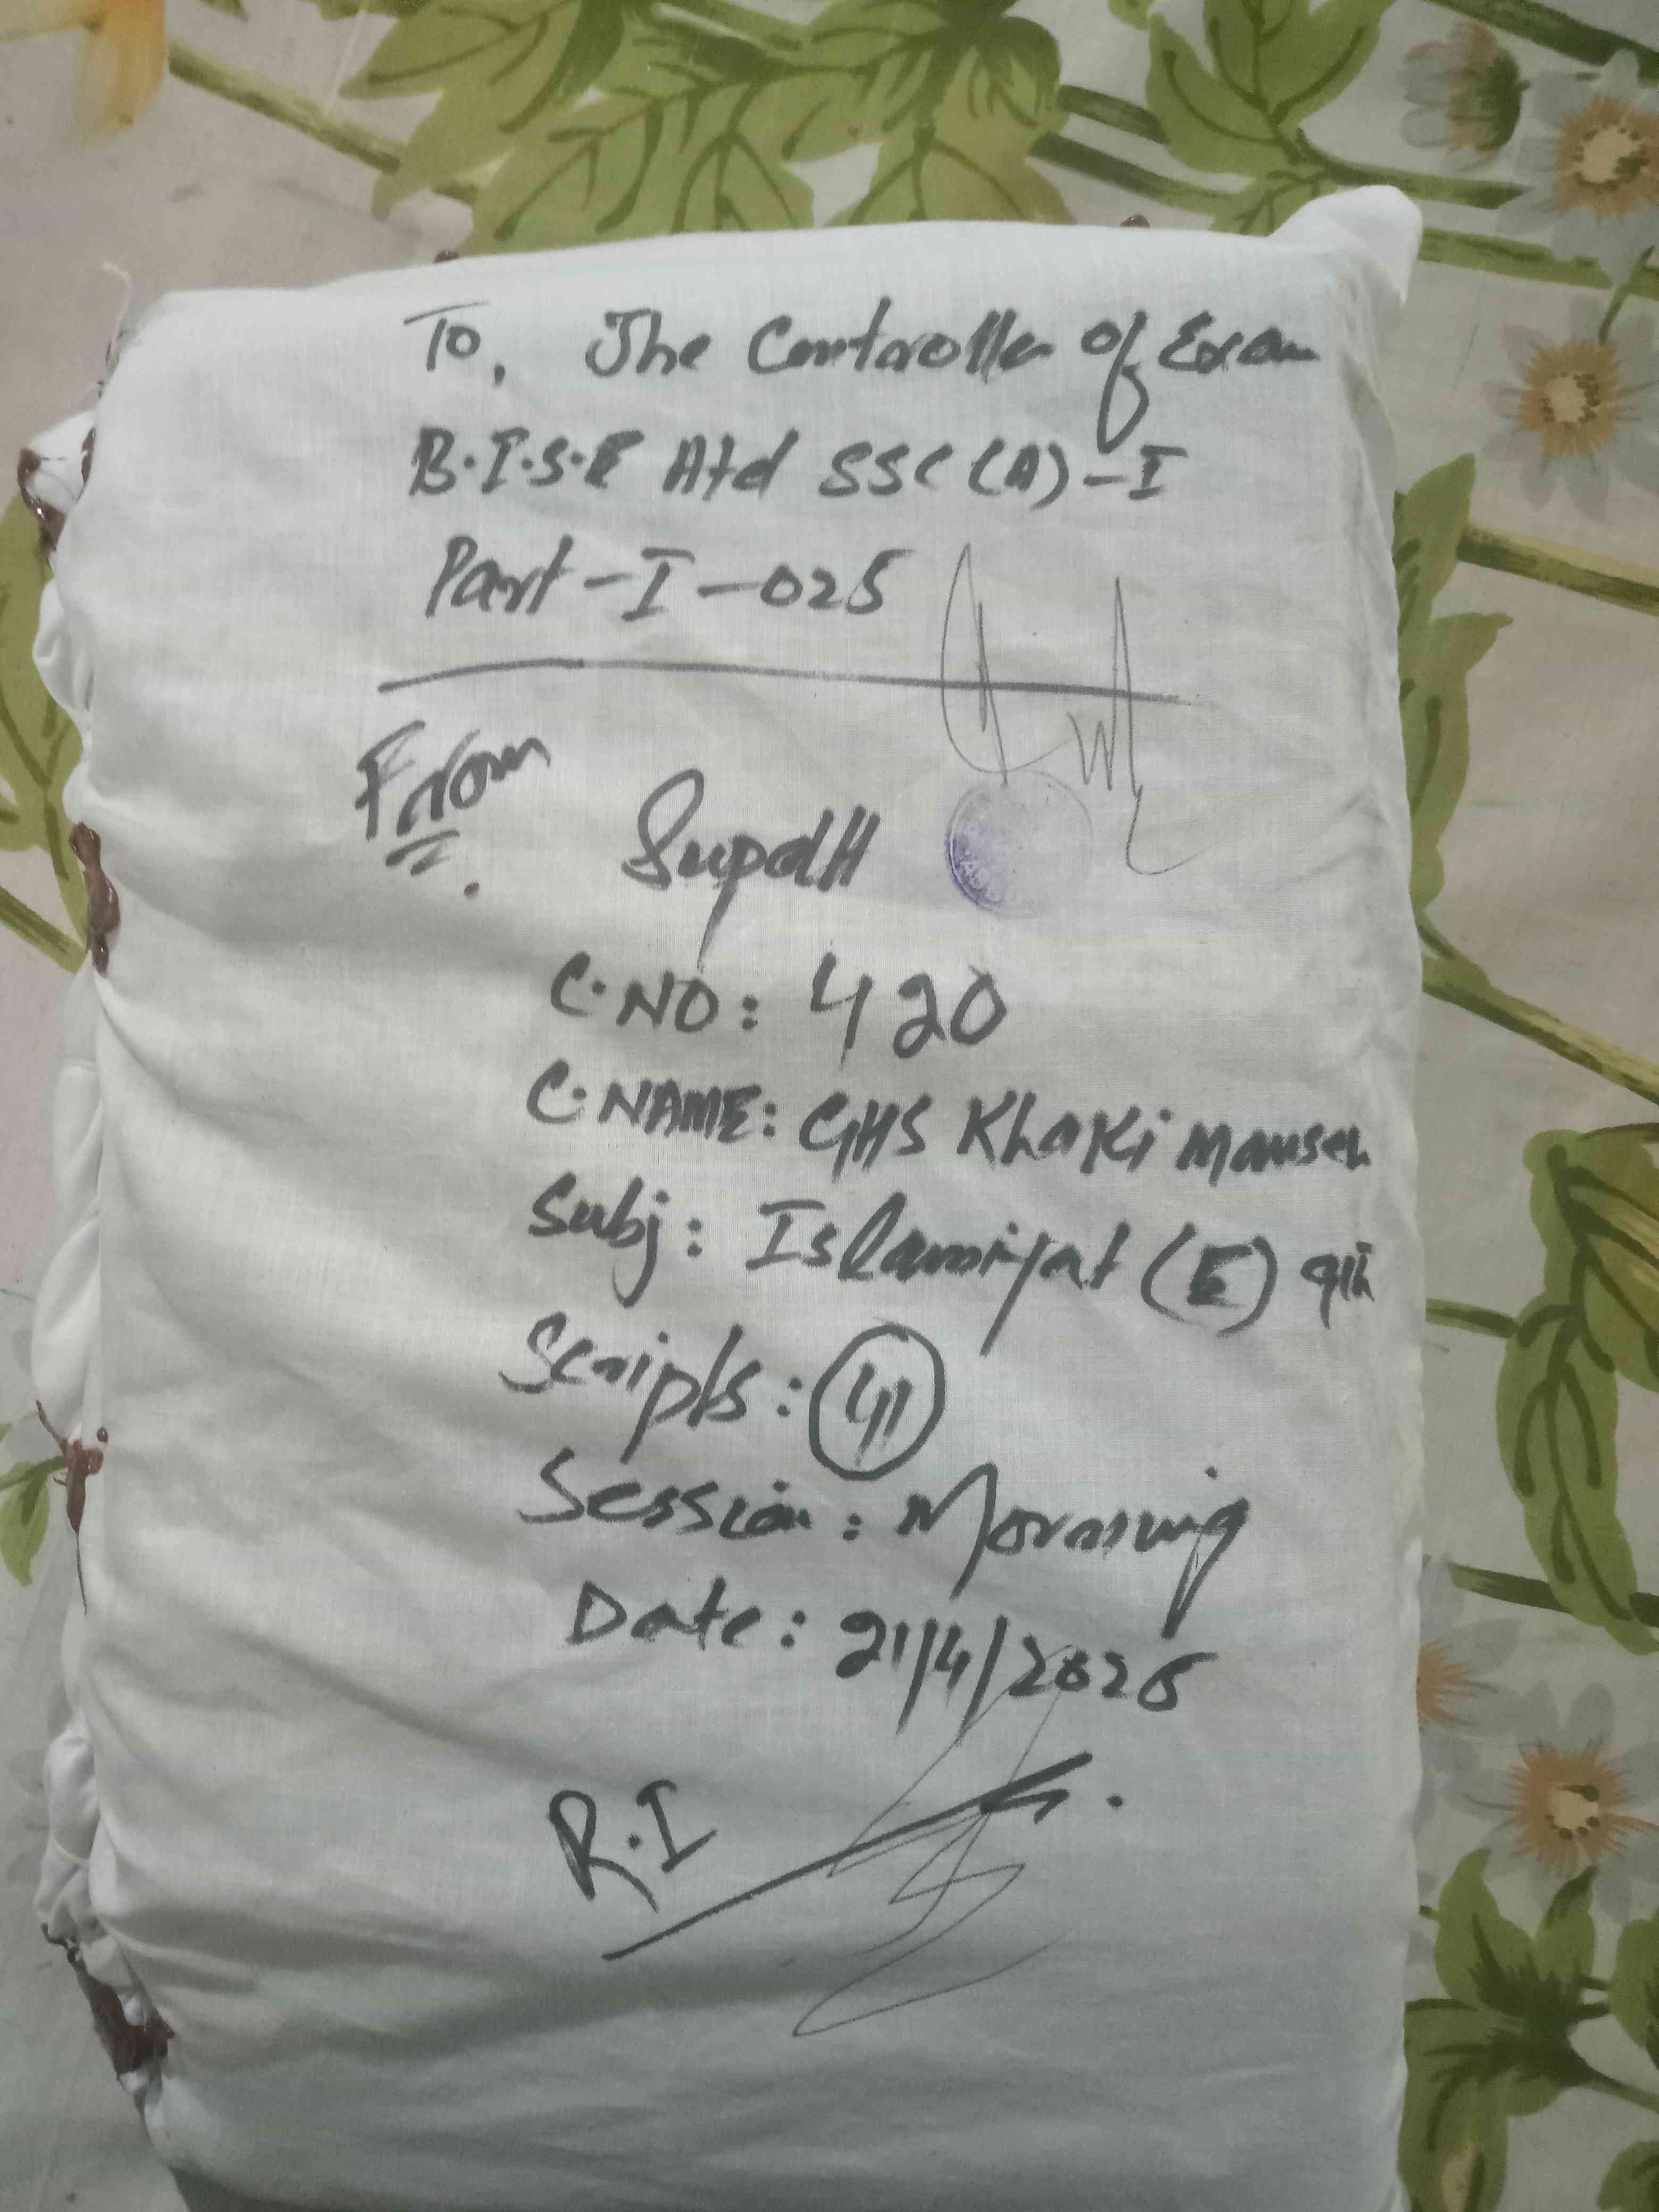 To, The Controller of Exam
B.I.S.E Atd SSC (A)-I
Part-I-025
From
Supdtt
C.NO: 420
C.NAME: GHS Khaki Manseh
Subj: Islamiyat (E) 9th
Scripts: 41
Session: Morning
Date: 21/4/2025
R.I